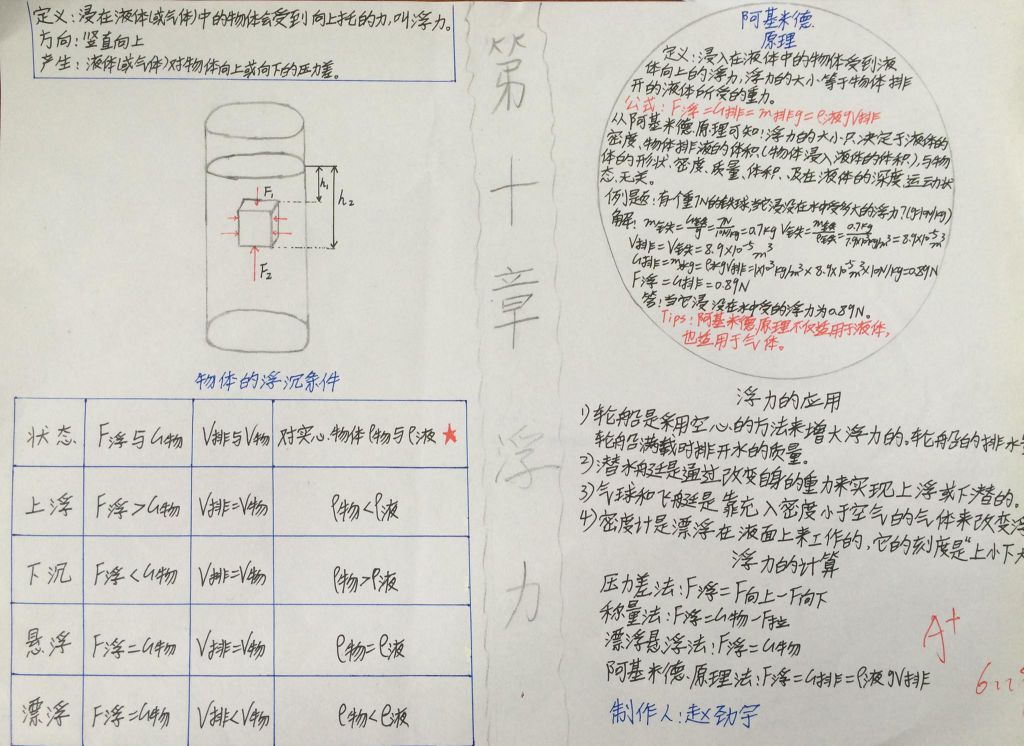 定义:浸在液体(或气体)中的物体会受到向上托的力,叫浮力。
方向:竖直向上
产生:液体(或气体)对物体向上或向下的压力差。
F₁
h₁
h₂
F₂
物体的浮沉条件
状态 F浮与G物 V排与V物 对实心物体ρ物与ρ液★
上浮 F浮>G物 V排=V物 ρ物<ρ液
下沉 F浮<G物 V排=V物 ρ物>ρ液
悬浮 F浮=G物 V排=V物 ρ物=ρ液
漂浮 F浮=G物 V排<V物 ρ物<ρ液
第十章浮力
阿基米德
原理
定义:浸入在液体中的物体受到液
体向上的浮力,浮力的大小等于物体排
开的液体所受的重力。
公式:F浮=G排=m排g=ρ液gV排
从阿基米德原理可知:浮力的大小只决定于液体的
密度、物体排液的体积(物体浸入液体的体积),与物
体的形状、密度、质量、体积、及在液体的深度、运动状
态无关。
例题:有个重7N的铁球,当它浸没在水中受多大的浮力?(g=10N/kg)
解:m铁=G铁/g=7N/10N/kg=0.7kg V铁=m铁/ρ铁=0.7kg/7.9×10³kg/m³=8.9×10⁻⁵m³
V排=V铁=8.9×10⁻⁵m³
G排=m水g=ρ水gV排=1×10³kg/m³×8.9×10⁻⁵m³×10N/kg=0.89N
F浮=G排=0.89N
答:当它浸没在水中受的浮力为0.89N。
Tips:阿基米德原理不仅适用于液体,
也适用于气体。
浮力的应用
1)轮船是采用空心的方法来增大浮力的。轮船的排水
轮船满载时排开水的质量。
2)潜水艇是通过改变自身的重力来实现上浮或下潜的。
3)气球和飞艇是靠充入密度小于空气的气体来改变浮
4)密度计是漂浮在液面上来工作的,它的刻度是"上小下大
浮力的计算
压力差法:F浮=F向上-F向下
称量法:F浮=G物-F拉
漂浮悬浮法:F浮=G物
阿基米德原理法:F浮=G排=ρ液gV排
A+
制作人:赵劲宇